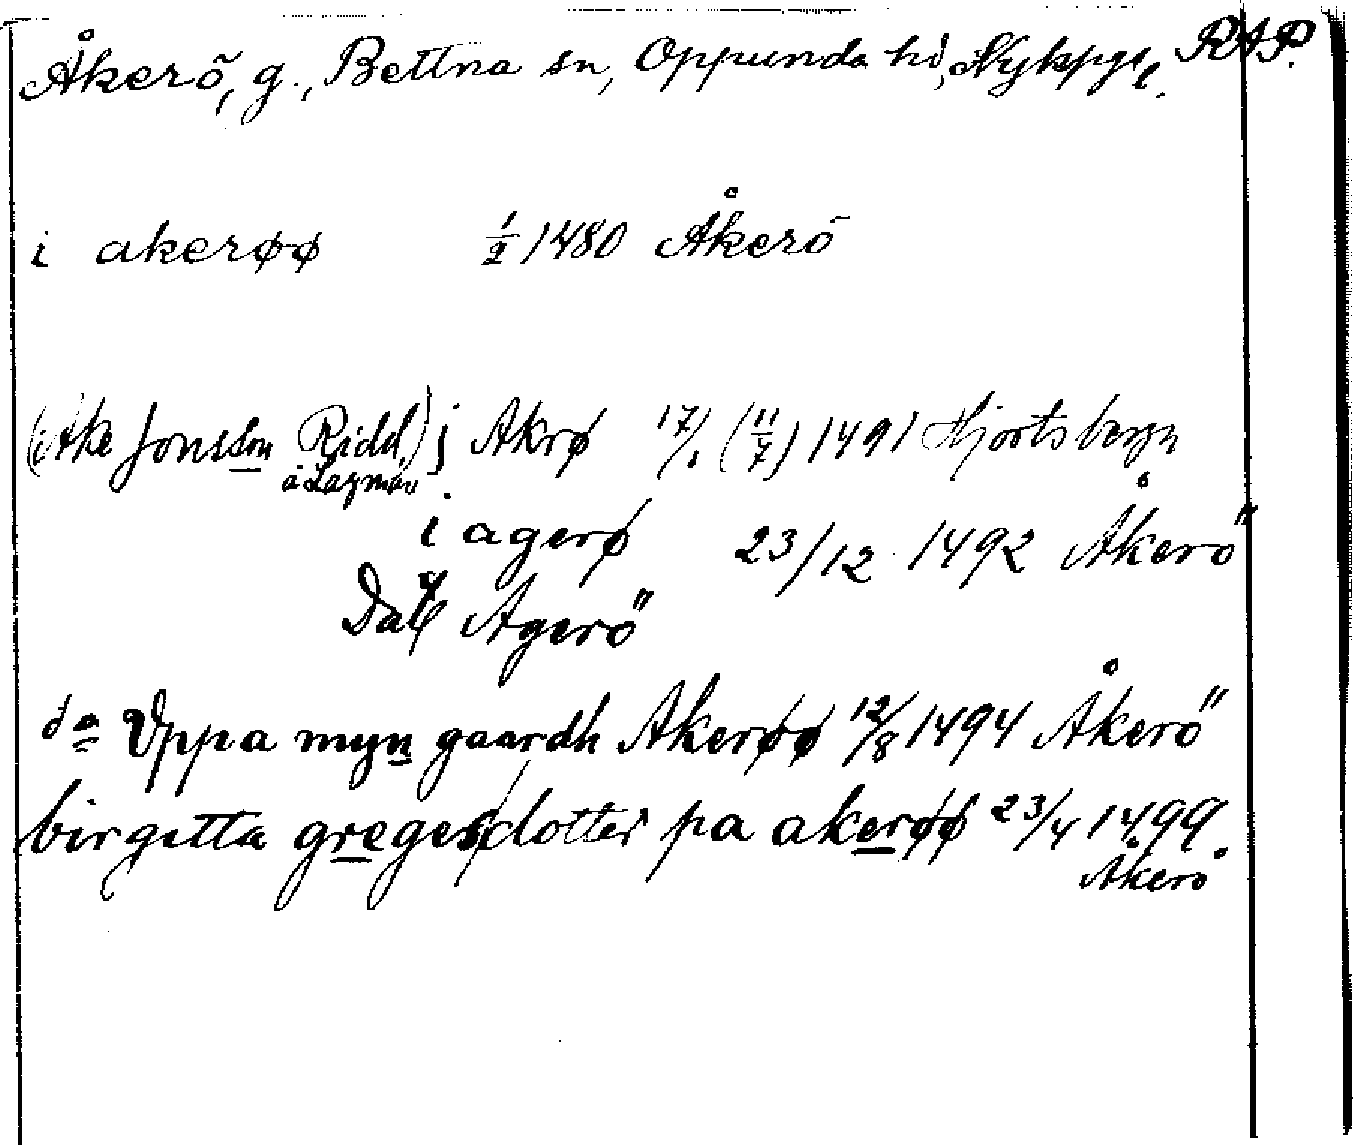 Åkerö, g., Bettna sn, Oppunda hd, Nykpgs l. RAP.
i akerøø 1/2 1480 Åkerö
(Åke Jonsson Ridd. a Lagman) j Akrø 17/1 (11/7) 1491 Hjortsbergn
i agerø 23/12 1492 Åkerö
Dat Agerö
da Vppa myn gaardh Akerøø 12/8 1494 Åkerö
birgitta gregesdotter pa akerøø 23/4 1499
Åkerö